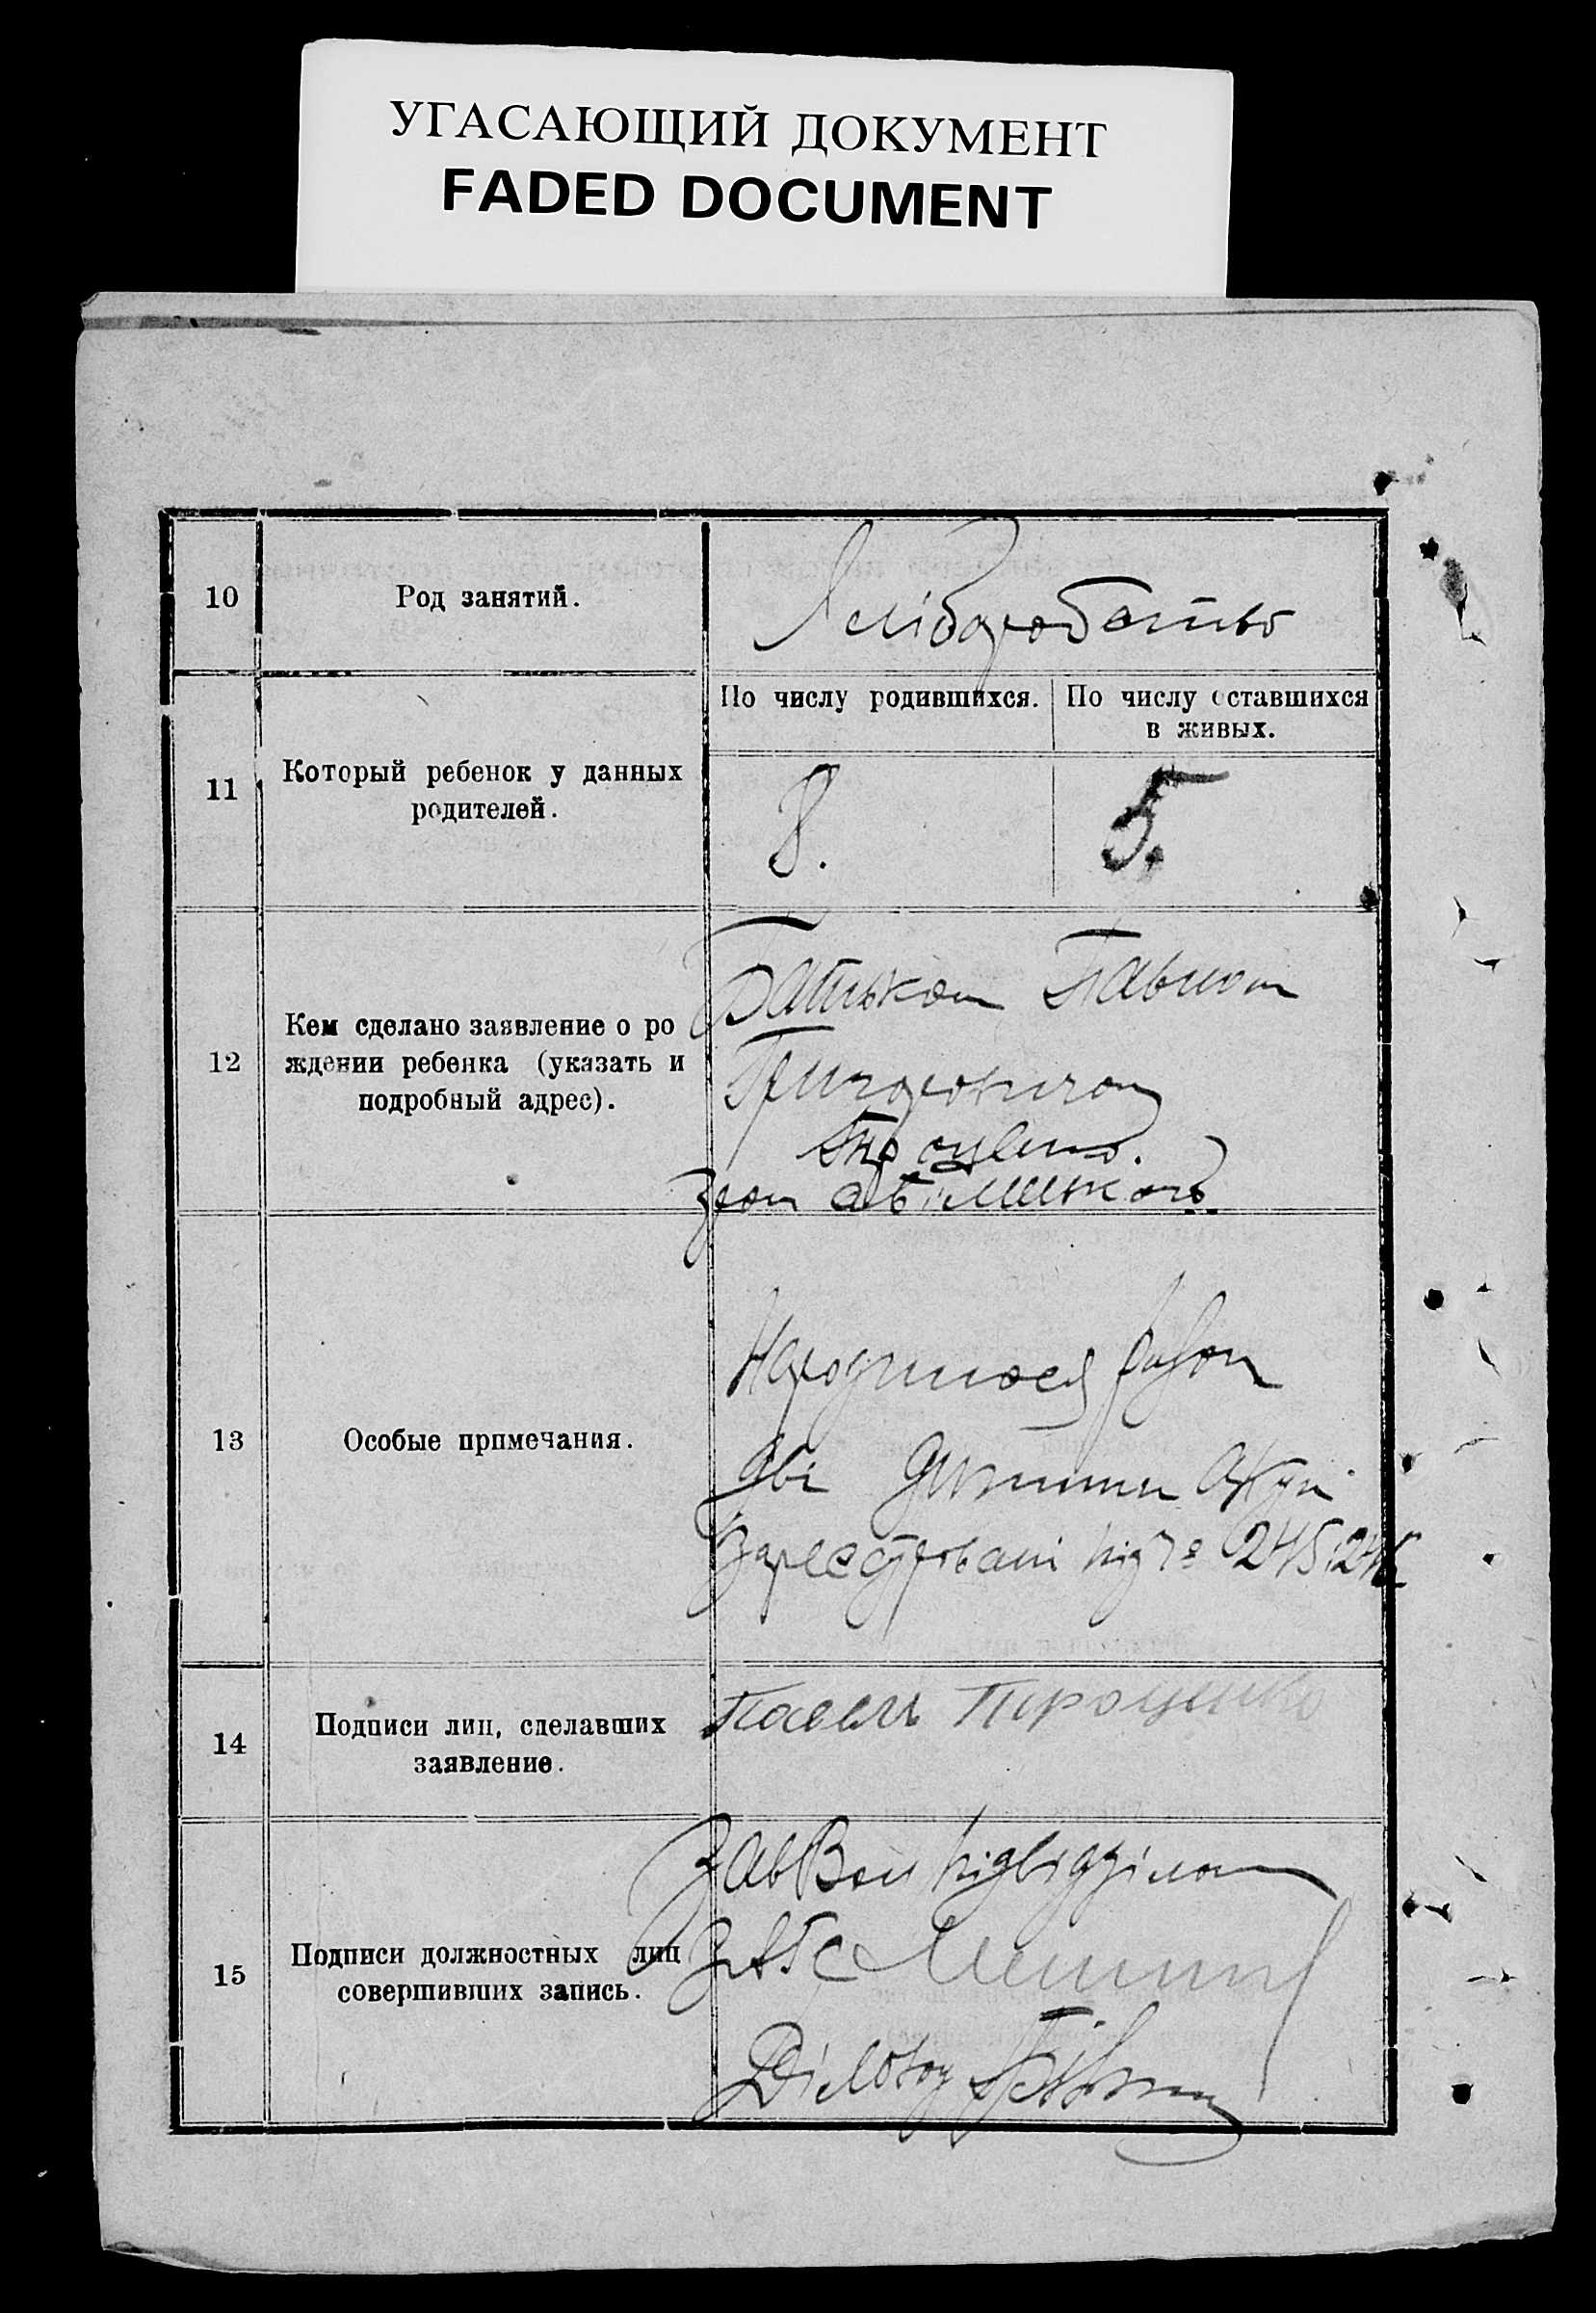 УГАСАЮЩИЙ ДОКУМЕНТ
FADED DOCUMENT
10
Род занятий.
Хліборобство
11
Который ребенок у данных
родителей.
По числу родившихся.
По числу оставшихся
в живых.
8.
5.
12
Кем сделано заявление о ро
ждении ребенка (указать и
подробный адрес).
Батьком Павлом
Григоровичом
Проценко.
13
Особые примечания.
Народилося разом
дві дитини
Зареєстровані під № 245 і 246
14
Подписи лиц, сделавших
заявление.
Павелъ Проценко
15
Подписи должностных лиц
совершивших запись.
Зав Вол підвідділом
ЗАГС
Діловод